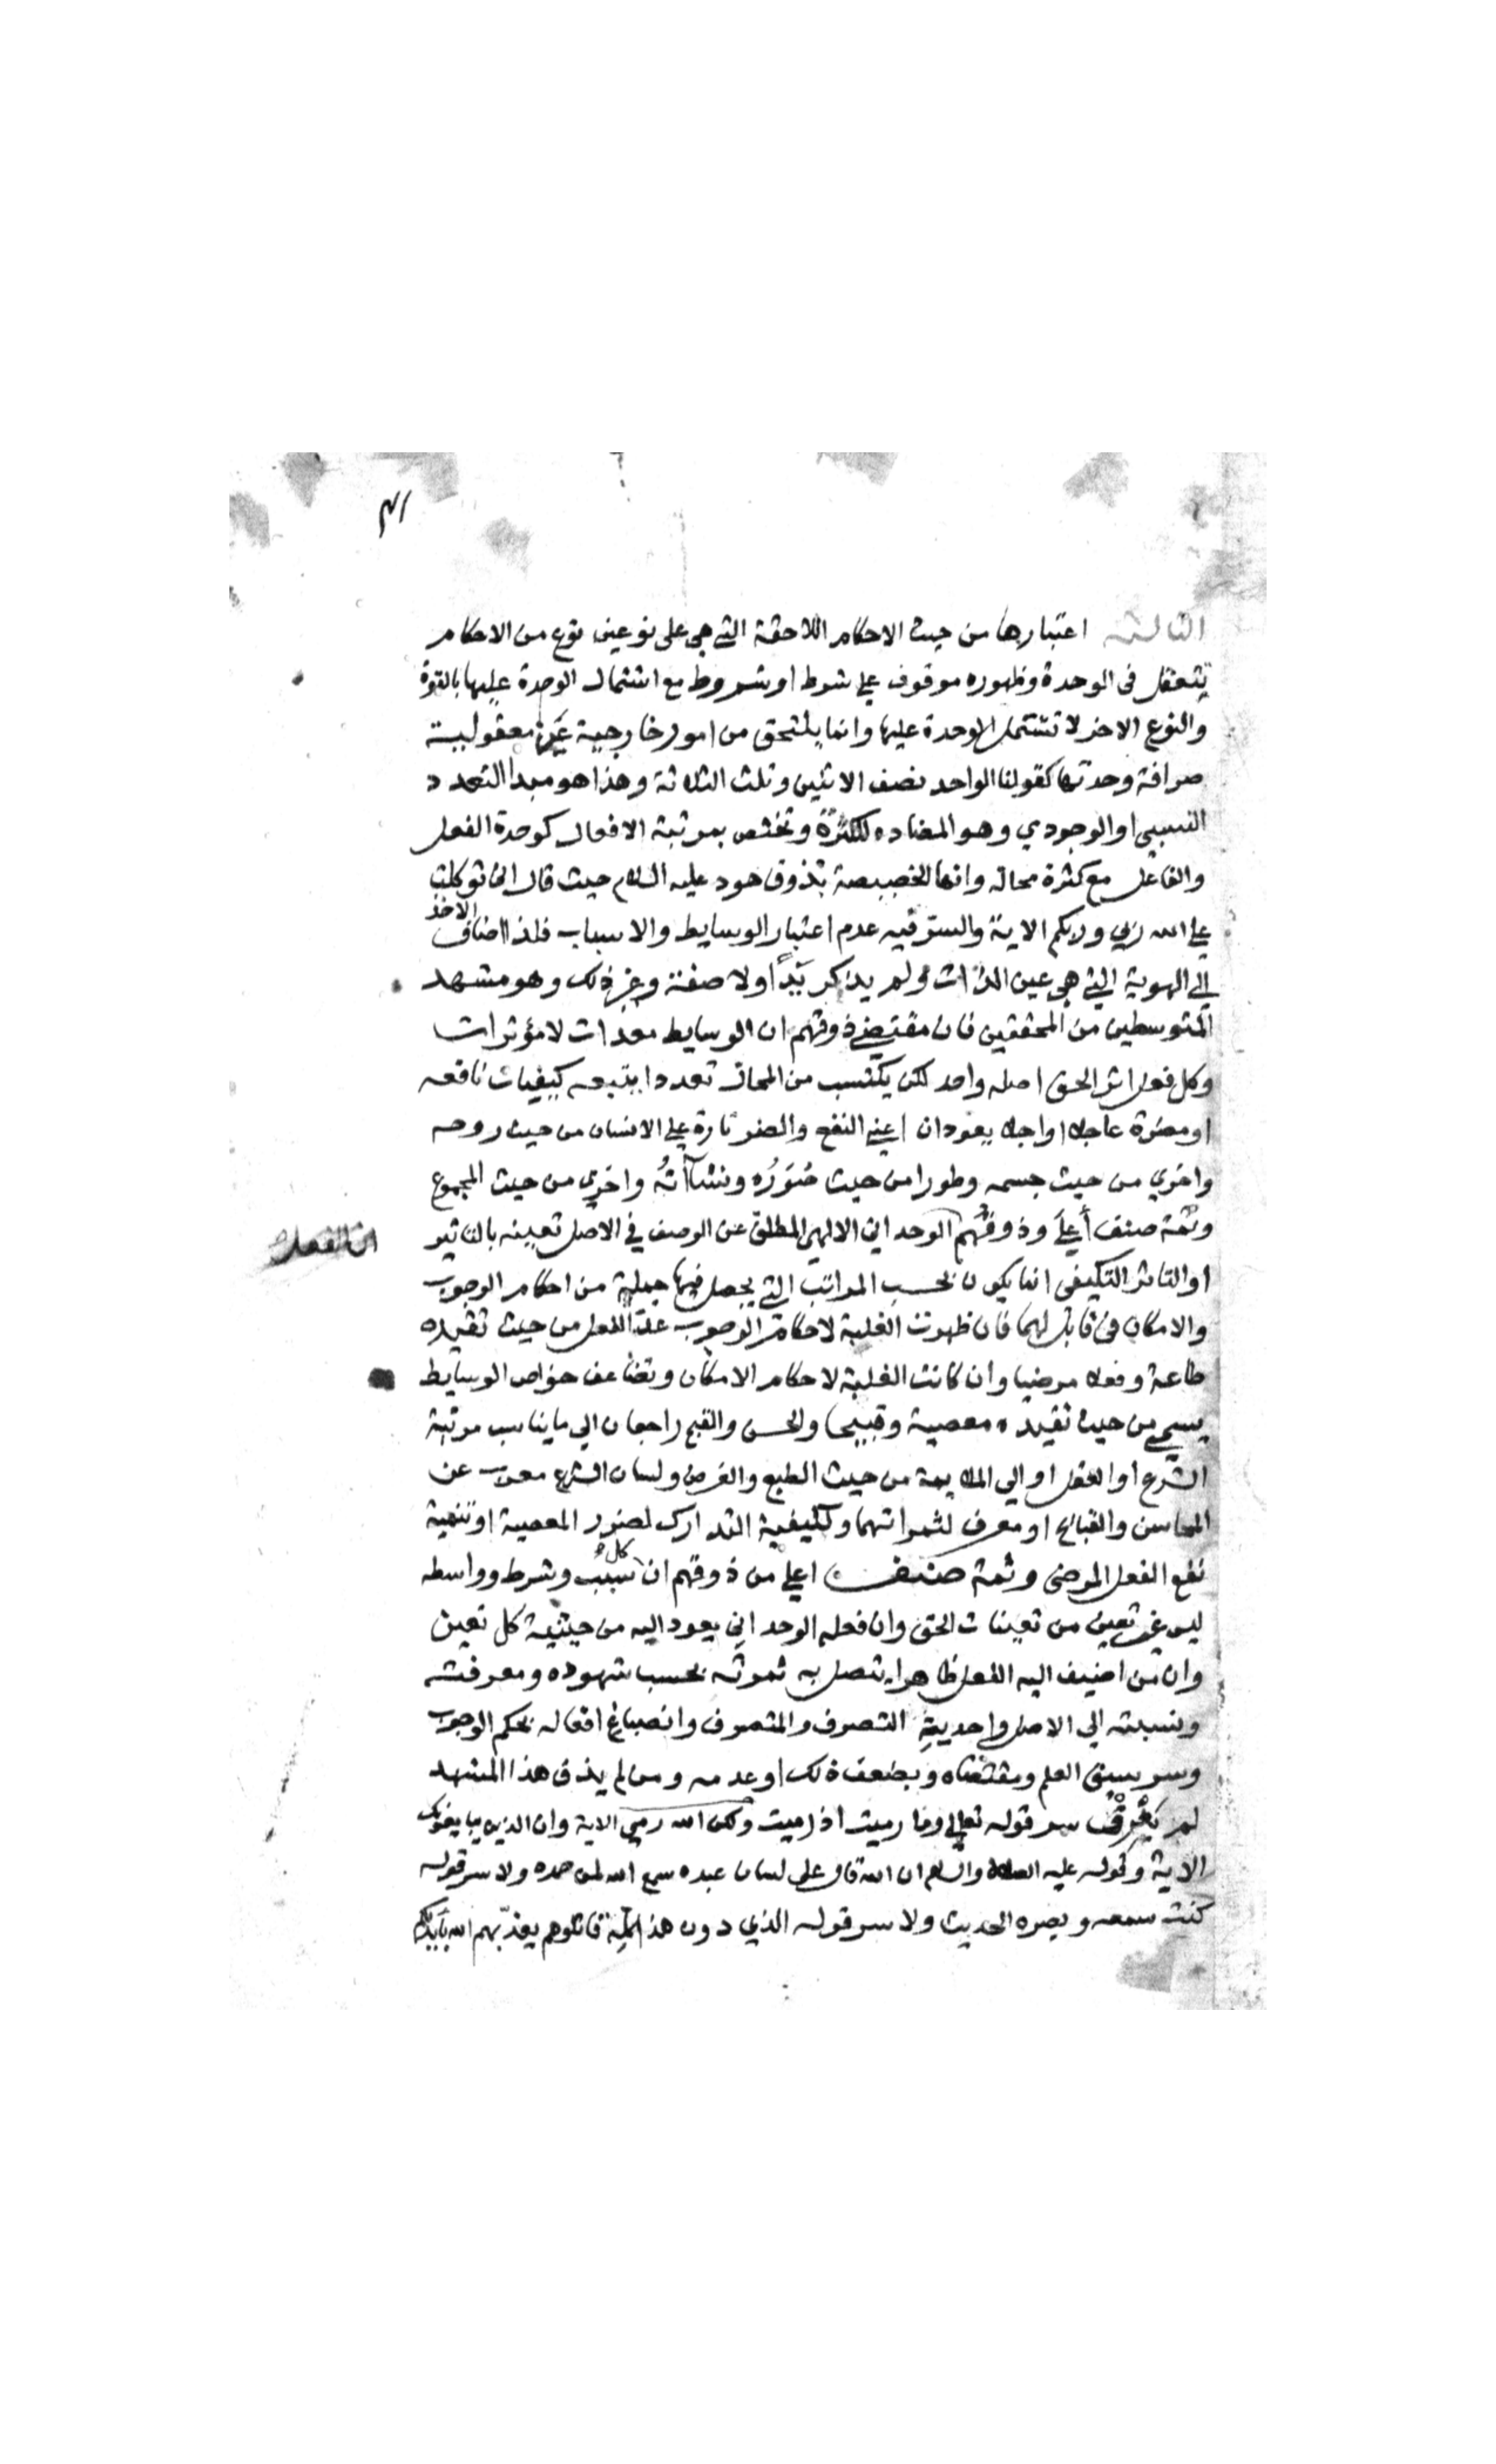 الثالثة اعتبارها من حيث الاحكام اللاحقة التي هي على نوعين نوع من الاحكام
يتعقل فى الوحدة وظهوره موقوف علي شرط او شروط مع اشتمال الوحدة عليها بالقوة
والنوع الاخر لا تشتمل الوحدة عليها وانما يلتحق من امور خارجية عن معقولية
صرافة وحدتها كقولنا الواحد نصف الاثنين وثلث الثلاثة وهذا هو مبدا التعدد
النسبي او الوجودي وهو المضاده للكثرة وتختص بمرتبة الافعال كوحدة الفعل
والفاعل مع كثرة محاله وانها الخصيصة بذوق هود عليه السلام حيث قال اني توكلت
علي الله ربي وربكم الاية والسر فيه عدم اعتبار الوسايط والاسباب فلذا اضاف الاخذ
الي الهوية التي هي عين الذات ولم يذكر يدًا ولا صفة وغير ذلك وهو مشهد
المتوسطين من المحققين فان مقتضي ذوقهم ان الوسايط معدات لا مؤثرات
وكل فعل اثر الحق اصله واحد لكن يكتسب من المحال تعددا يتبعه كيفيات نافعه
او مضرة عاجلا او اجلا يعودان اعني النفع والضر تارة علي الانسان من حيث روحه
واخري من حيث جسمه وطورا من حيث صُوَرُه ونشاآتُهُ واخري من حيث المجموع
وثمة صنف أعلَي وذوقهم الوحداني الالهي المطلق عن الوصف في الاصل تعينه بالتاثير
ان الفعل
او التاثر التكيفى انما يكون بحسب المراتب التي يحصل فيها جملة من احكام الوجوب
والامكان فى قابل لهما فان ظهرت الغلبة لاحكام الوجوب عدّ الفعل من حيث تقيده
طاعة وفعلا مرضيا وان كانت الغلبة لاحكام الامكان وتضاعف خواص الوسايط
يسمي من حيث تقيده معصية وقبيحا والحسن والقبح راجعان الي ما يناسب مرتبة
الشرع او العقل او الي الملايمة من حيث الطبع والغرض ولسان الشرع معرب عن
المحاسن والقبائح او معرف لثمراتهما وكيفية التدارك لضرر المعصية او تنمية
نفع الفعل المرضى وثمة صنف اعلي من ذوقهم ان كل سبب وشرط وواسطه
ليس غير تعين من تعينات الحق وان فعله الوحداني يعود اليه من حيثية كل تعين
وان من اضيف اليه الفعل ظاهرا يتصل به ثمرته بحسب شهوده ومعرفته
ونسبته الي الاصل واحدية التصرف والمتصرف وانصباغ افعاله بحكم الوجوب
وسر سبق العلم ومقتضاه وبضعف ذلك او عدمه ومن لم يذق هذا المشهد
لم يعرف سر قوله تعالي وما رميت اذ رميت ولكن الله رمي الاية وان الذين يبايعونك
الاية وكقوله عليه الصلاة والسلام ان الله قال على لسان عبده سمع الله لمن حمده ولا سر قوله
كنت سمعه وبصره الحديث ولا سر قوله الذي دون هذا قاتلوهم يعذبهم الله بايديكم